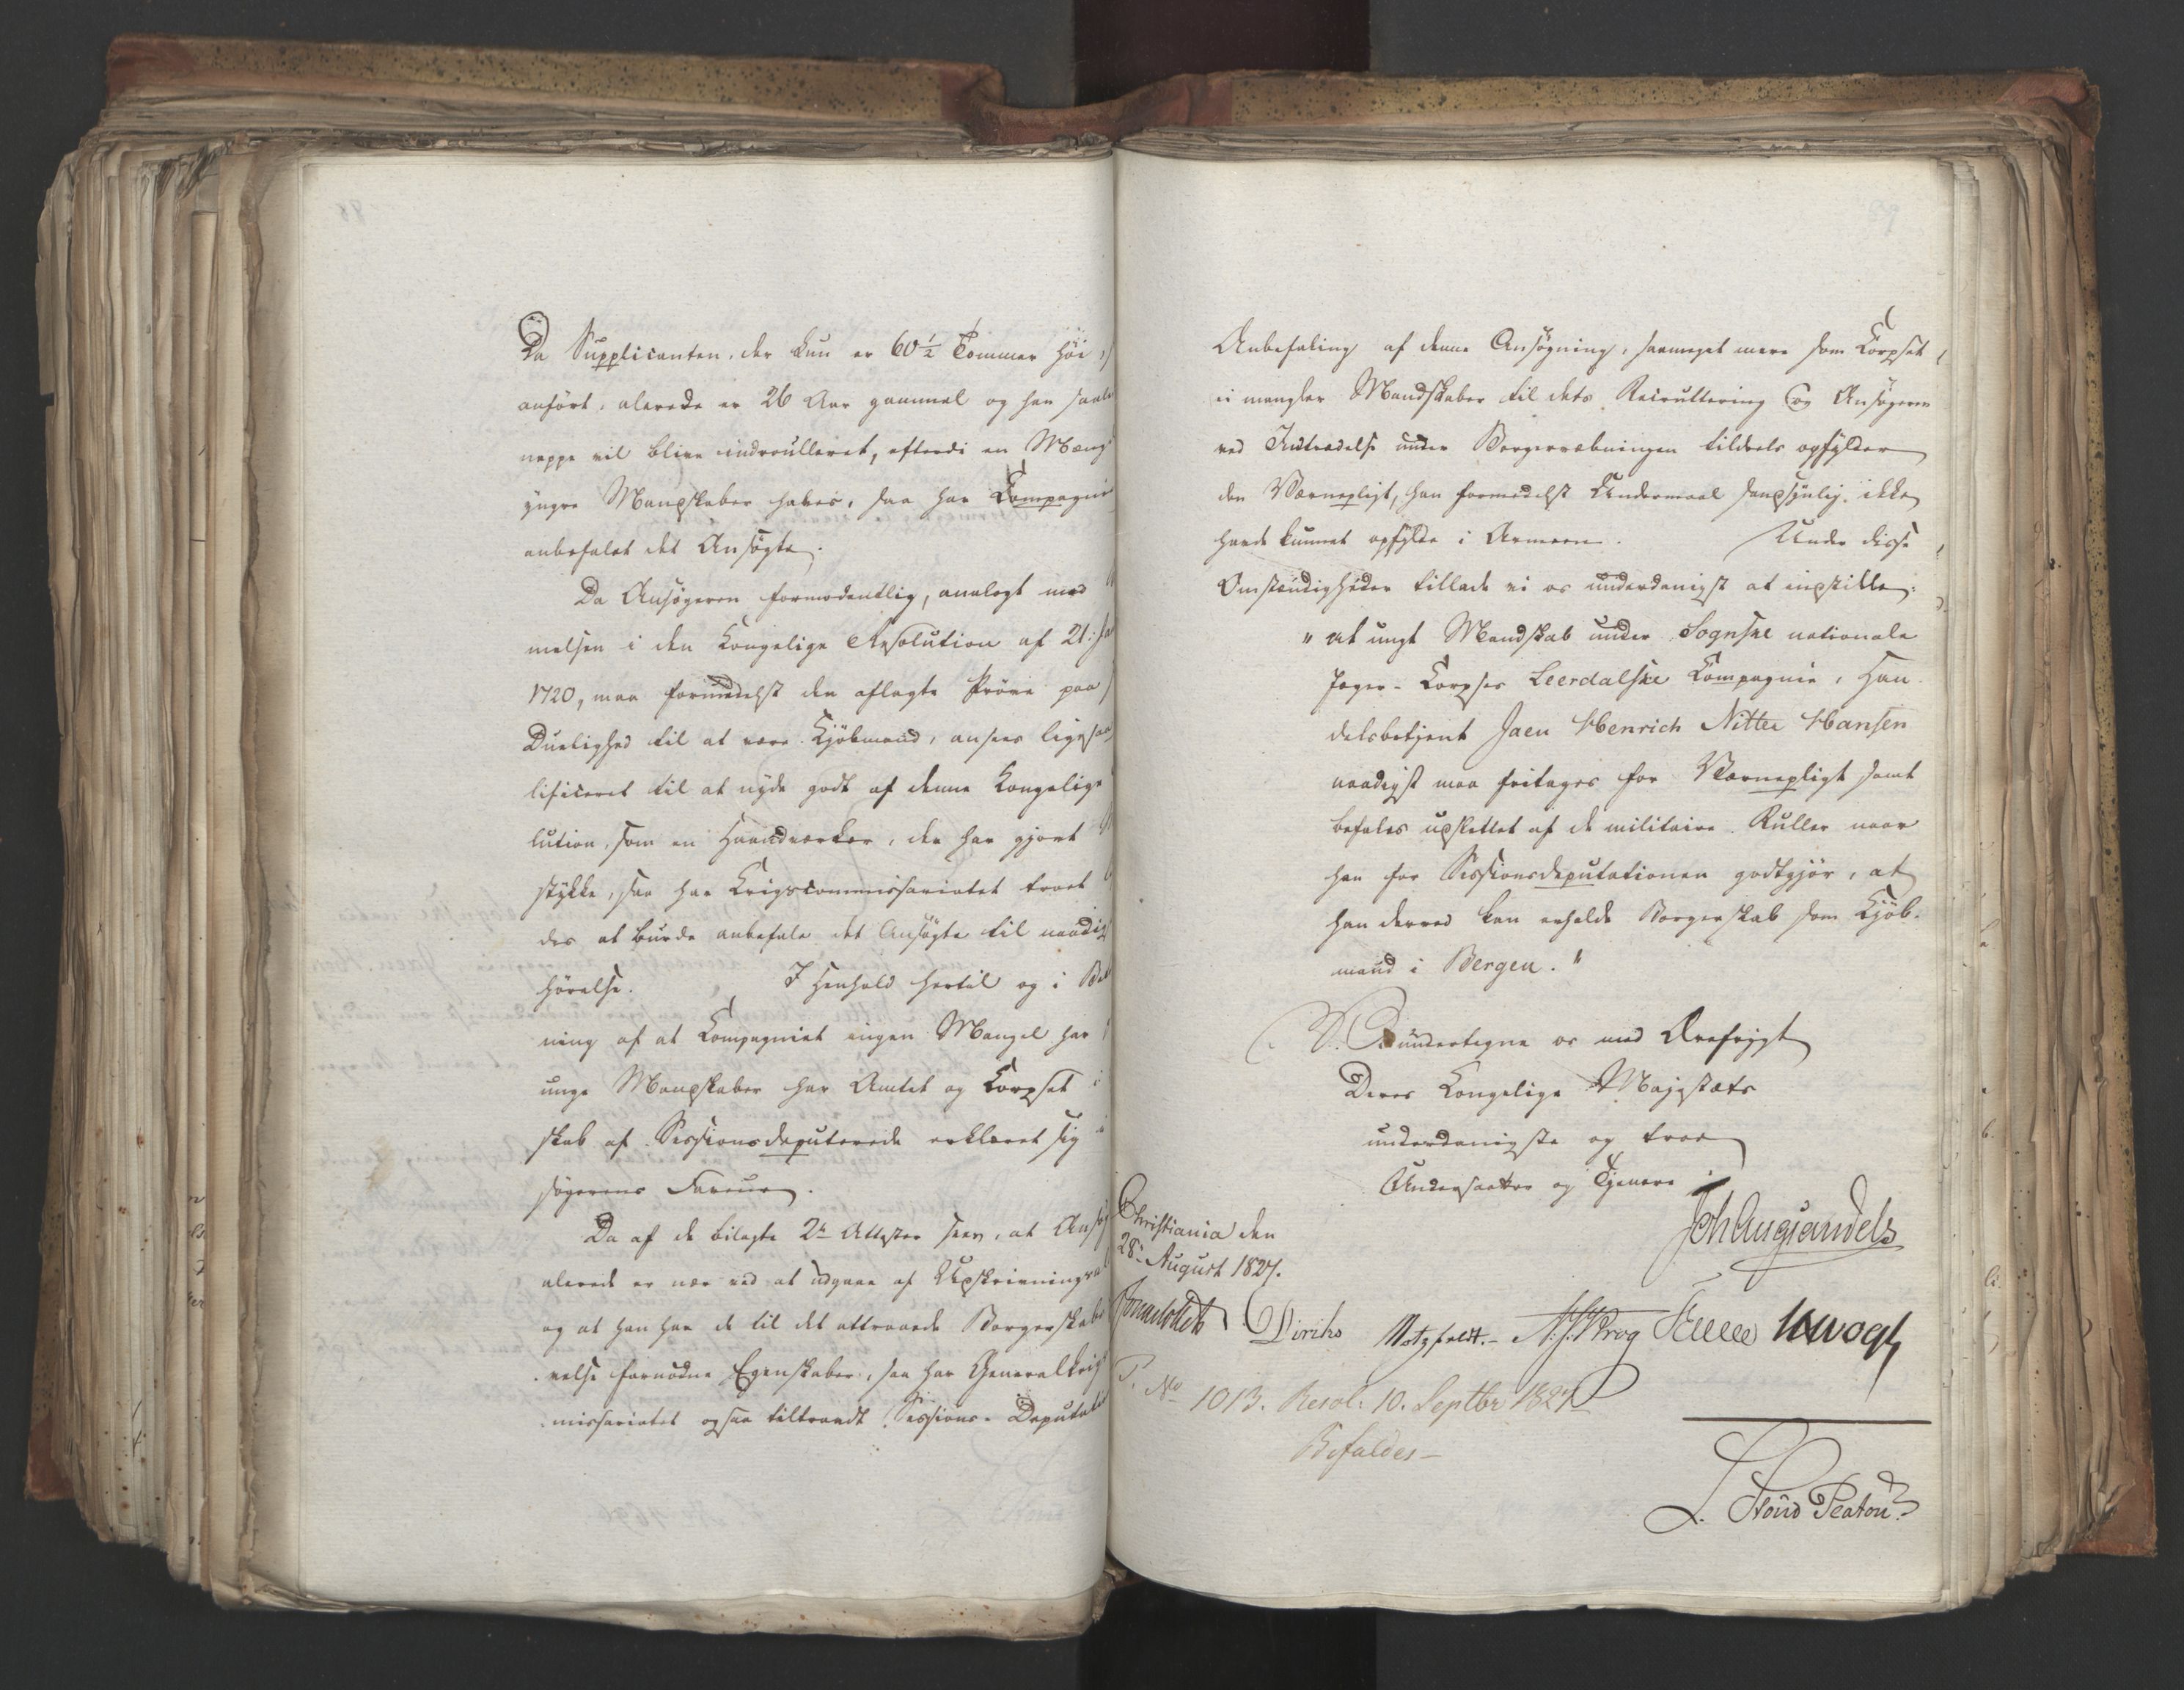 Da Supplicanten, der kun er 60½ Tommer høi,
anført, alerede er 26 Aar gammel og han saale
neppe vil blive indroulleret, efterdi en Mæng
yngre Mandskaber haves, saa har Compagnie
anbefalet det Ansøgte.
Da Ansøgeren formodentlig, analogt med
melsen i den Kongelige Resolution af 21:
1720, maa formedelst den aflagte Prøve paa
Duelighed til at være Kjøbmand, ansees ligesaa
lificeret til at nyde godt af denne Kongelige
lution, som en Haandværker, der har gjort
stykke, saa har Krigscommissariatet troet
des at burde anbefale det Ansøgte til naadig
hørelse. I Henhold hertil og i Be
ning af at Compagniet ingen Mangel har
unge Mandskaber har Amtet og Corpset i
skab af Sessionsdeputerede erklæret sig i
søgerens Faveur.
Da af de bilagte 2de Attester sees, at Ansøg
alerede er nær ved at udgaae af Udskrivnings
og at han har de til det attraaede Borgerskabs
velse fornødne Egenskaber, saa har Generalkrigs
missariatet ogsaa tiltraadt Sessions-Deputati
Anbefaling af denne Ansøgning, saameget mere som Corpset
ei mangler Mandskaber til dets Recruttering og Ansøgeren
ved Indtrædelse under Borgervæbningen tildeels opfylder
den Værnepligt, han formedelst Undermaal sandsynlig ikke
havde kunnet opfylde i Armeen. Under disse
Omstændigheder tillade vi os underdanigst at indstille:
"at ungt Mandskab under Sognske nationale
Jæger-Corpses Leerdalske Compagnie, Han-
delsbetjent Jaen Henrich Nitter Hansen
naadigst maa fritages for Værnepligt samt
befales udslettet af de militaire Ruller naar
han for Sessionsdeputationen godtgjør, at
han derved kan erholde Borgerskab som Kjøb-
mand i Bergen."
Vi undertegne os med Ærefrygt
Deres Kongelige Majestæts
underdanigste og troe
Undersaatter og Tjenere
Joh Aug Sandels
Christiania den
28de August 1827.
Jonas Collett Diriks Motzfeldt. A. J. Krog J. Vogt
P. No 1013. Resol: 10. Septbr 1827
Bifaldes—